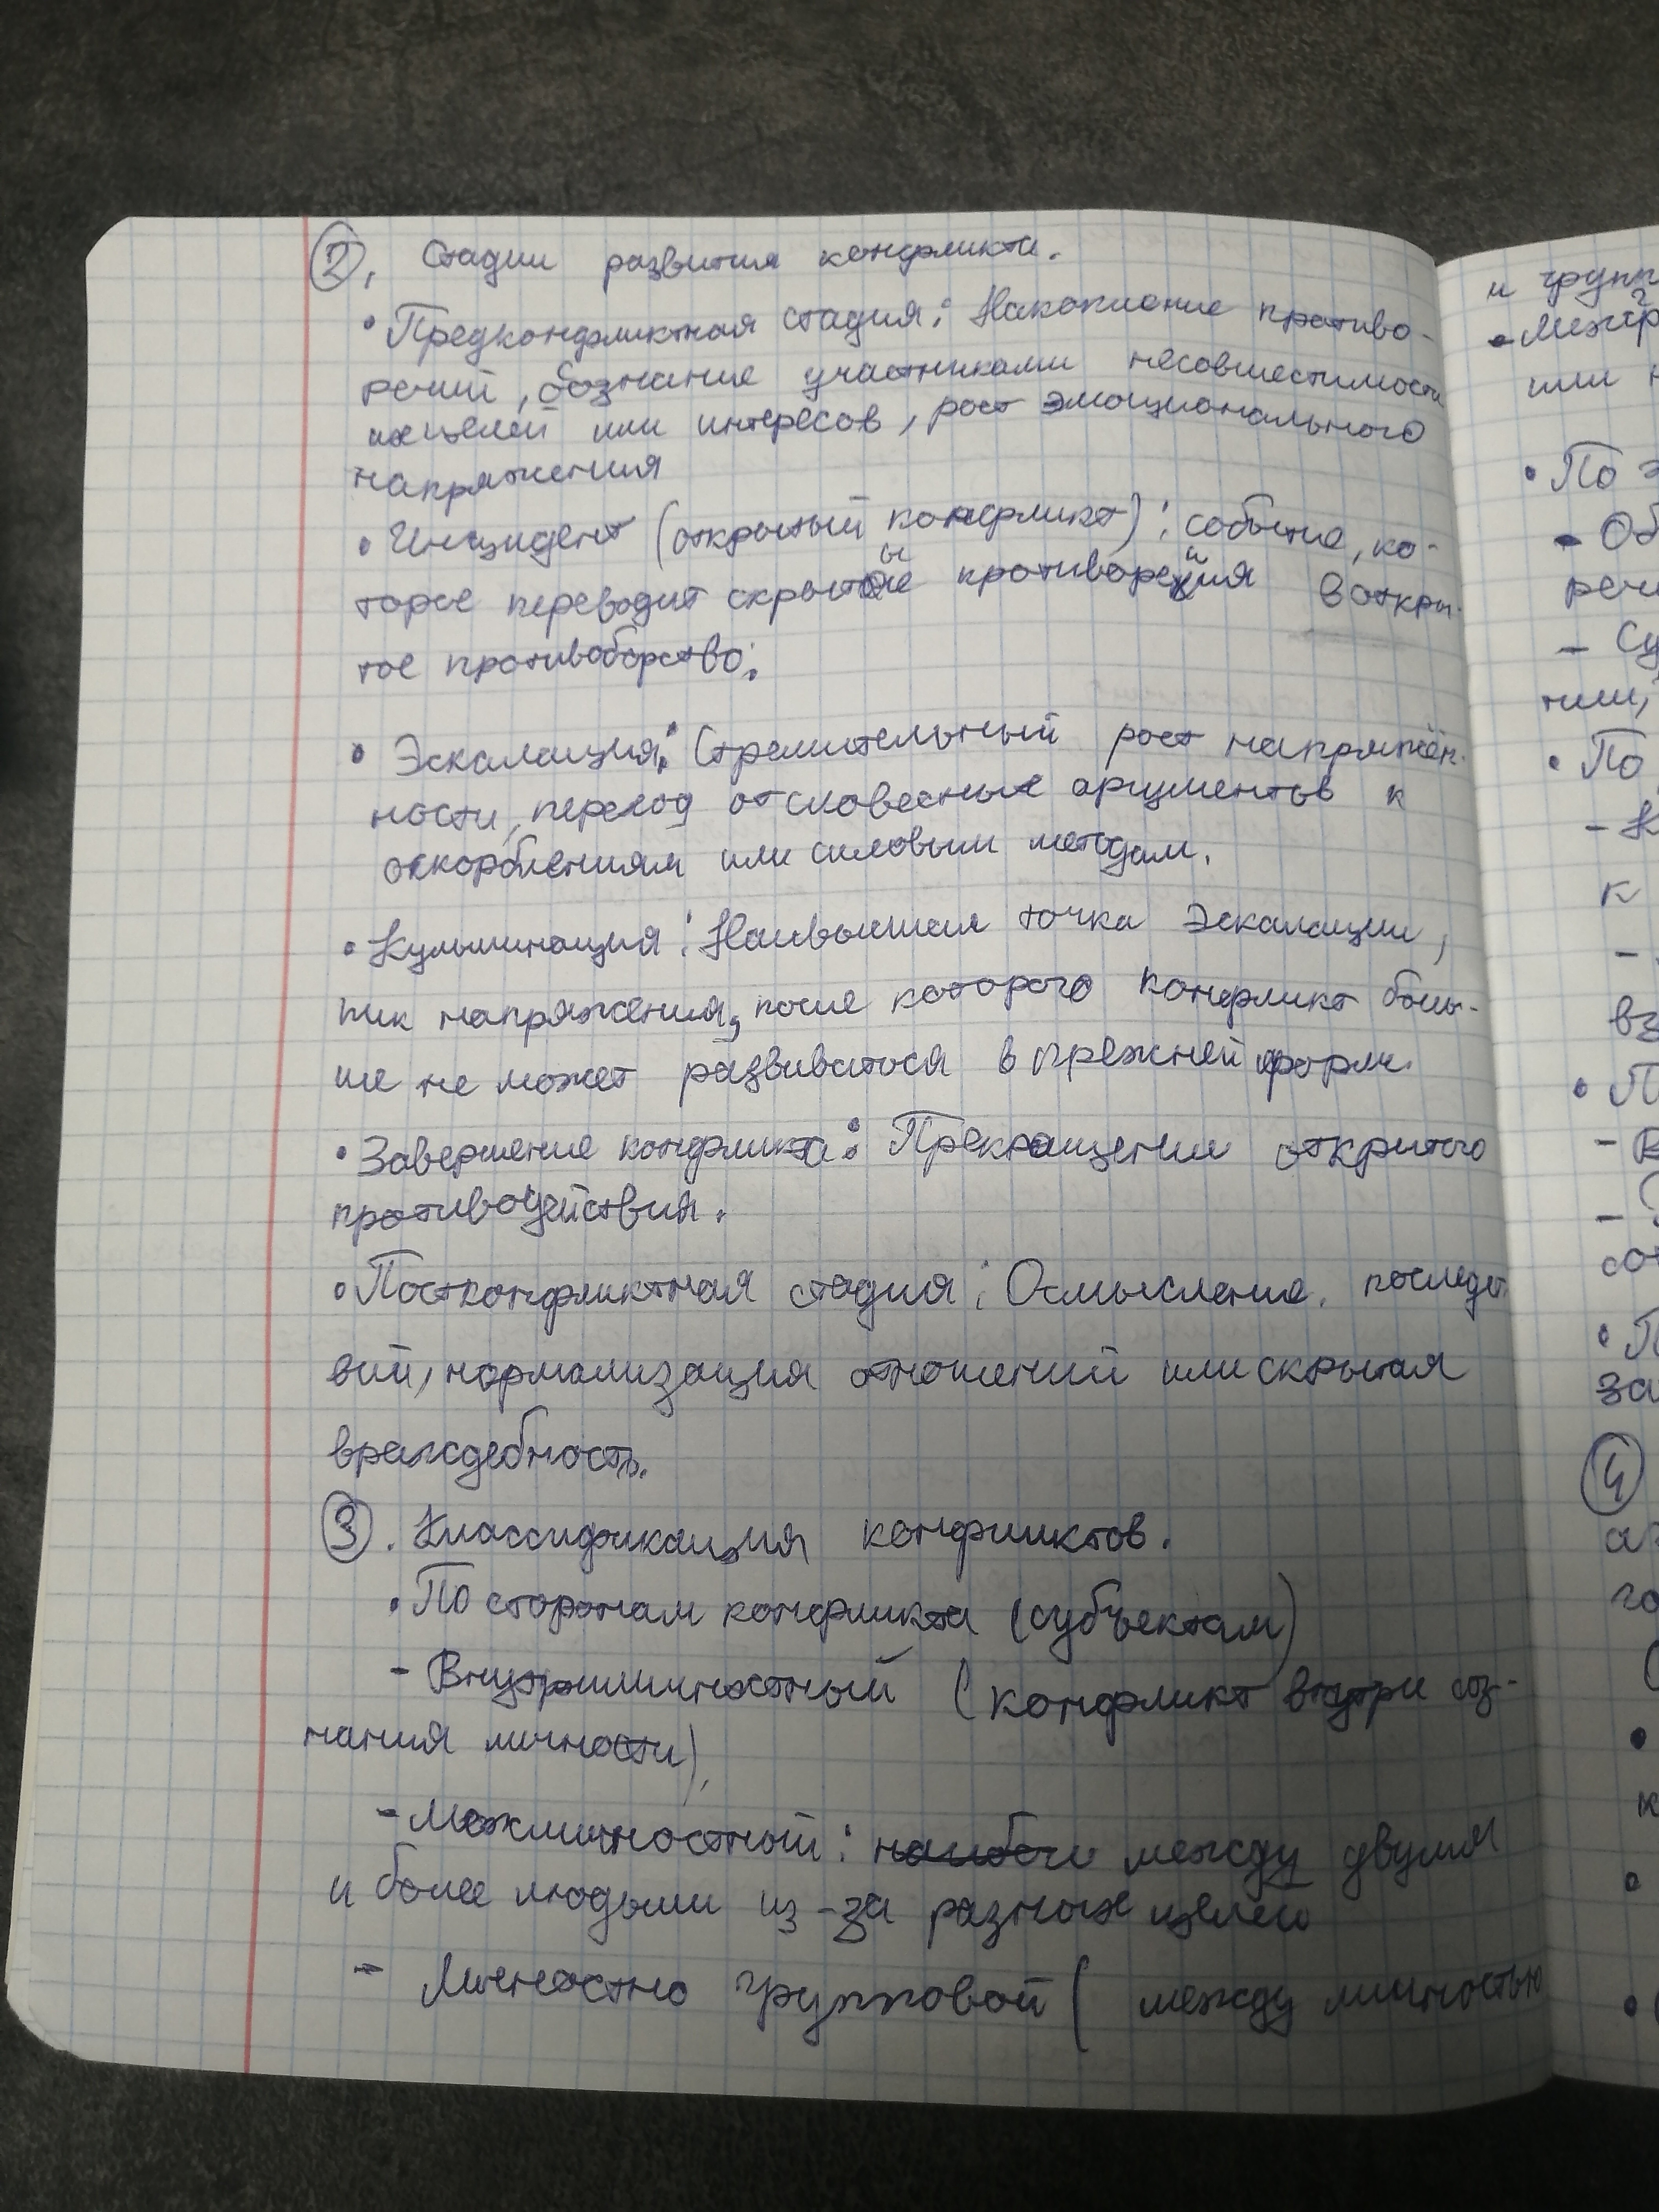 2. Стадии развития конфликта.
• Предконфликтная стадия: Накопление противо-
речий, осознание участниками несовместимости
их целей или интересов, рост эмоционального
напряжения
• Инцидент (открытый конфликт): событие, ко-
торое переводит скрытые противоречия в откры-
тое противоборство.
• Эскалация: Стремительный рост напряжён-
ности, переход от словесных аргументов к
оскорблениям или силовым методам.
• Кульминация: Наивысшая точка эскалации,
пик напряжения, после которого конфликт боль-
ше не может развиваться в прежней форм.
• Завершение конфликта: Прекращении открытого
противодействия.
• Постконфликтная стадия: Осмысление последст
вий, нормализация отношений или скрытая
враждебность.
3. Классификация конфликтов.
• По сторонам конфликта (субъектам)
- Внутриличностный (конфликт внутри соз-
нания личности),
- Межличностный: между двумя
и более людьми из-за разных целей
- Личностно групповой (между личностью
и групп
- Межгр
или
• По э
- Об
рече
- Су
тии,
• По
- К
к
-
вз
• П
- В
-
со
• П
за
4